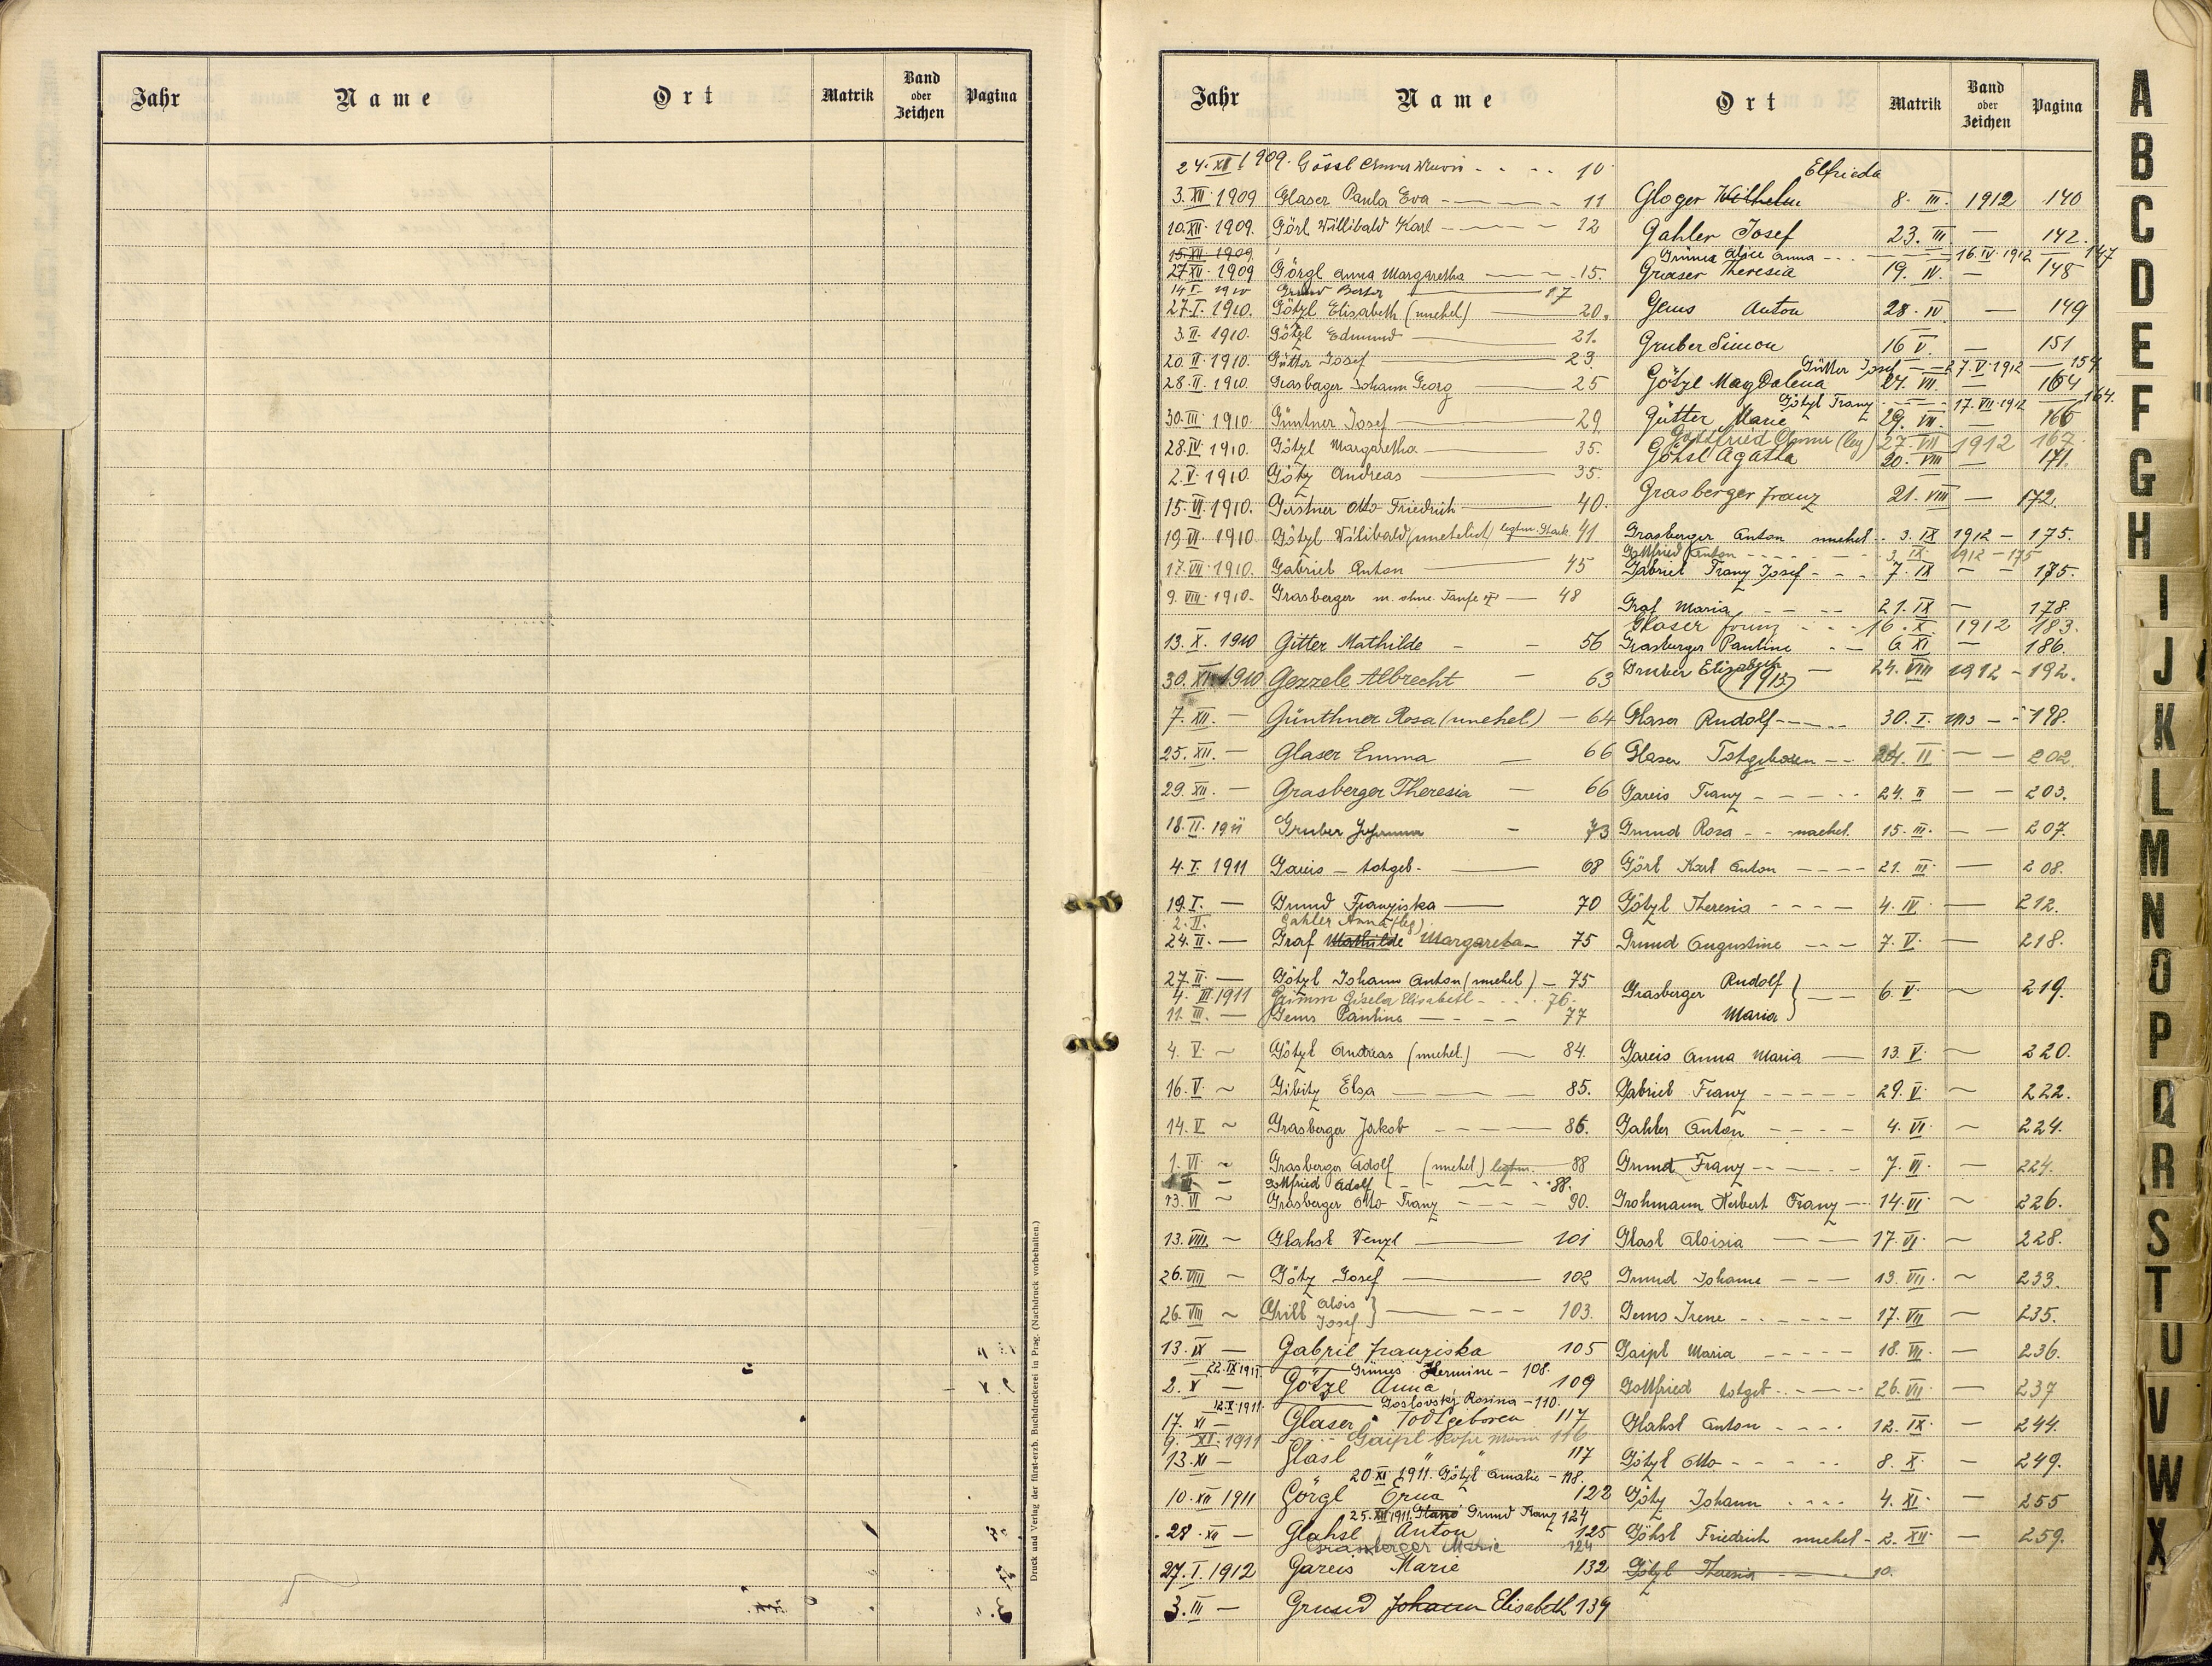 Jahr Name Ort Matrik Band oder Zeichen Pagina
Druck und Verlag der fürst-erzb. Buchdruckerei in Prag. (Nachdruck vorbehalten.)
Jahr Name Ort Matrik Band oder Zeichen Pagina
24. XII 1909. Gössl 10
3. XII 1909 Glaser Paula Eva 11
10. XII. 1909. Görl Willibald Karl 12
15. XII. 1909
27 XII. 1909 Görgl Anna Margaretha 15.
14 I. 1910 Grund Berta 17
27. I. 1910. Götzl Elisabeth (unehel) 20.
3. II. 1910. Götzl Edmund 21.
20. II. 1910. Gütter Josef 23.
28. II. 1910. Grasberger Johann Georg 25
30. III 1910. Güntner Josef 29
28. IV. 1910. Götzl Margaretha 35.
2. V. 1910. Götz Andreas 35.
15. VI. 1910. Gerstner Otto Friedrich 40.
19. VI. 1910 Götzl Wilibald (unehelich) legtm. Stark 41
17. VII. 1910. Gabriel Anton 45
9. VIII. 1910. Grasberger m. ohne Taufe 48
13. X. 1910 Gitter Mathilde 56
30. XI. 1910 Gezzele Albrecht 63
7. XII. — Günthner Rosa (unehel) — 64
25. XII. — Glaser Emma 66
29. XII. — Grasberger Theresia — 66
18. II. 1911 Gruber Johanna 73
4. I. 1911 Gareis — totgeb. 68
19. I. — Grund Franziska 70
2. II. Gahler Anna (leg)
24. II. — Graf Mathilde Margareta 75
27. II. — Götzl Johann Anton (unehel) — 75
4. III. 1911 Grimm Gisela Elisabeth 76.
11. III. — Gems Pauline 77
4. V. ~ Götzl Andreas (unehel) 84.
16. V. ~ Gibitz Elsa 85.
14. V ~ Grasberger Jakob 86.
1. VI. ~ Grasberger Adolf (unehel) legtm. 88
Gottfried Adolf 88.
13. VI ~ Grasberger Otto Franz 90.
13. VIII. ~ Glahsl Venzl 101
26. VIII ~ Götz Josef 102
26. VIII ~ Grill Alois Josef } 103.
13. IX — Gabril Franziska 105
22. IX 1911 Grimes Hermine — 108.
2. X — Götzl Anna 109
12. X. 1911. Goslovský Rosina — 110.
17. XI — Glaser Todtgeboren 117
9. XI. 1911 Gaipl Marie 116
13. XI — Glasl " " 117
20. XI 1911. Götzl Amalie — 118.
10. XII 1911 Görgl Erna 122
25. XII 1911. Grund Franz 124
28. XII — Glahsl Anton 125
Grasberger Marie 124
27. I. 1912 Gareis Marie 132
3. III — Grund Johann Elisabeth 139
Elfrieda
Gloger Wilhelm 8. III. 1912 140
Gahler Josef 23. III — 142.
Grimm Alice Anna 16. IV. 1912 147
Graser Theresia 19. IV. — 148
Gems Anton 28. IV — 149
Gruber Simon 16 V. — 151
Gütter Josef — 27. V. 1912 — 154
Götzl Magdalena 24. VII. — 164
Götzl Franz 17. VII. 1912 164.
Gütter Marie 29. VII. — 166
Gottfried Anna (leg) 27. VII 1912 167
Göhsl Agatha 20. VIII — 171.
Grasberger Franz 21. VIII — 172.
Grasberger Anton unehel. 3. IX 1912 — 175.
Gottfried Anton 3. IX. 1912 — 175
Gabriel Franz Josef 7. IX — 175.
Graf Maria 21. IX — 178.
Glaser Franz 16. X. 1912 183.
Grasberger Pauline 6. XI — 186.
Gruber Elisabeth (1913) 24. VIII 1912 — 192.
Glaser Rudolf 30. I. 1913 — 198.
Glaser Totgeboren 24. II — 202.
Gareis Franz 24. II — 203.
Grund Rosa unehel. 15. III. — 207.
Görl Karl Anton 21. III — 208.
Götzl Theresia 4. IV — 212.
Grund Augustine 7. V. — 218.
Grasberger Rudolf Maria } 6. V. ~ 219.
Gareis Anna Maria 13. V. ~ 220.
Gabriel Franz 29. V. ~ 222.
Gahler Anton 4. VI. ~ 224.
Grund Franz 7. VI. — 224.
Grohmann Herbert Franz 14. VI ~ 226.
Glasl Aloisia 17. VI. ~ 228.
Grund Johann 13. VII. ~ 233.
Gems Irene 17. VII — 235.
Gaipl Maria 18. VII. — 236.
Gottfried totgeb. 26. VII. — 237
Glahsl Anton 12. IX. — 244.
Götzl Otto 8. X. — 249.
Götz Johann 4. XI. — 255
Göhsl Friedrich unehel. 2. XII. — 259.
Götzl Theresia 10.
A
B
C
D
E
F
G
H
I
J
K
L
M
N
O
P
Q
R
S
T
U
V
W
X